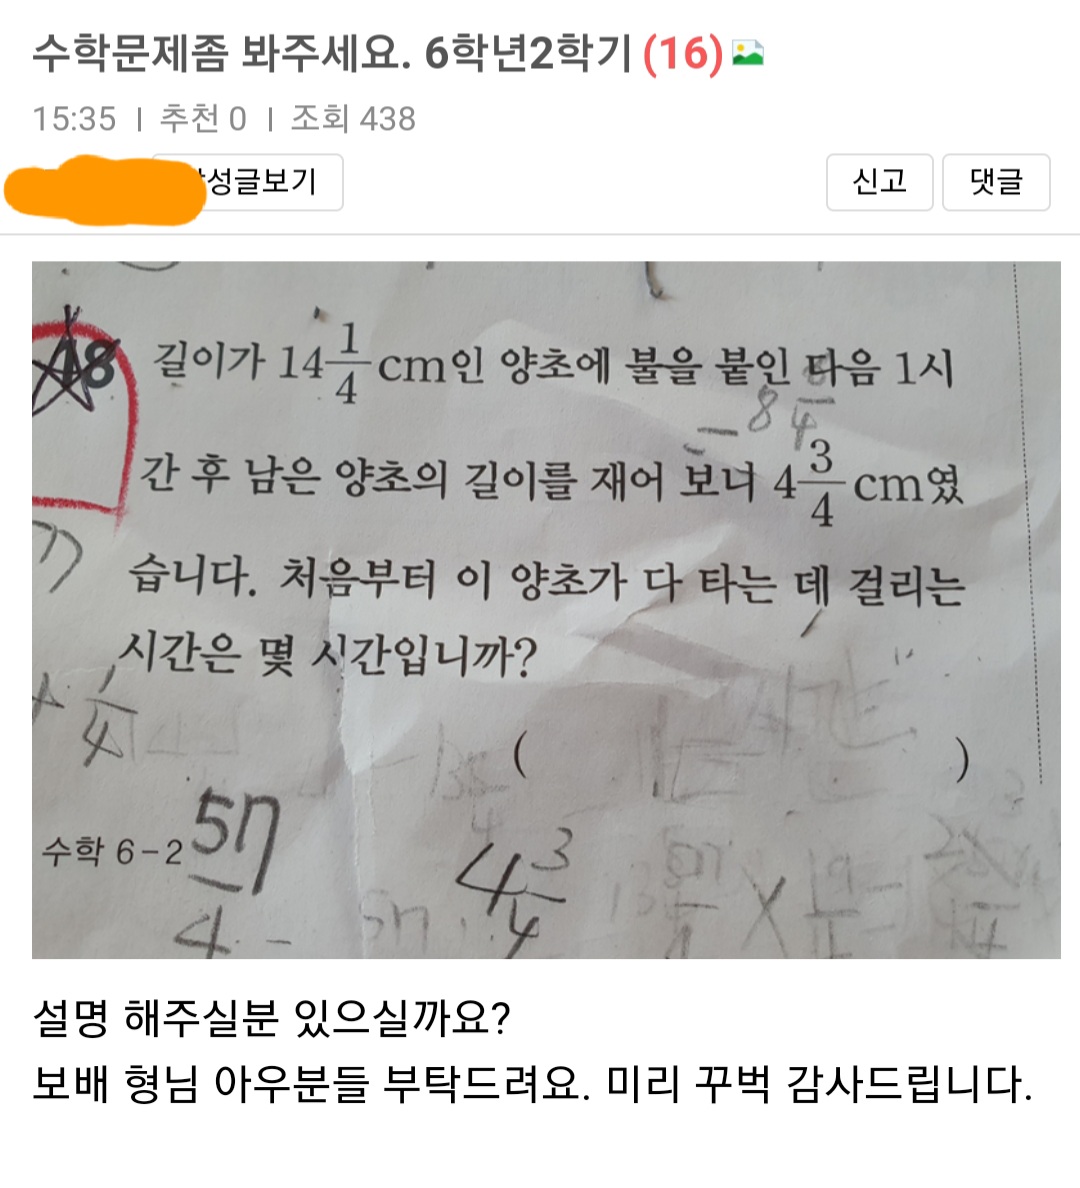 수학문제좀 봐주세요. 6학년2학기 (16)
15:35 | 추천 0 | 조회 438
성글보기
신고
댓글
18 길이가 14 1/4 cm인 양초에 불을 붙인 다음 1시
간 후 남은 양초의 길이를 재어 보니 4 3/4 cm였
습니다. 처음부터 이 양초가 다 타는 데 걸리는
시간은 몇 시간입니까?
( )
수학 6-2
57/4 -
4 3/4
설명 해주실분 있으실까요?
보배 형님 아우분들 부탁드려요. 미리 꾸벅 감사드립니다.